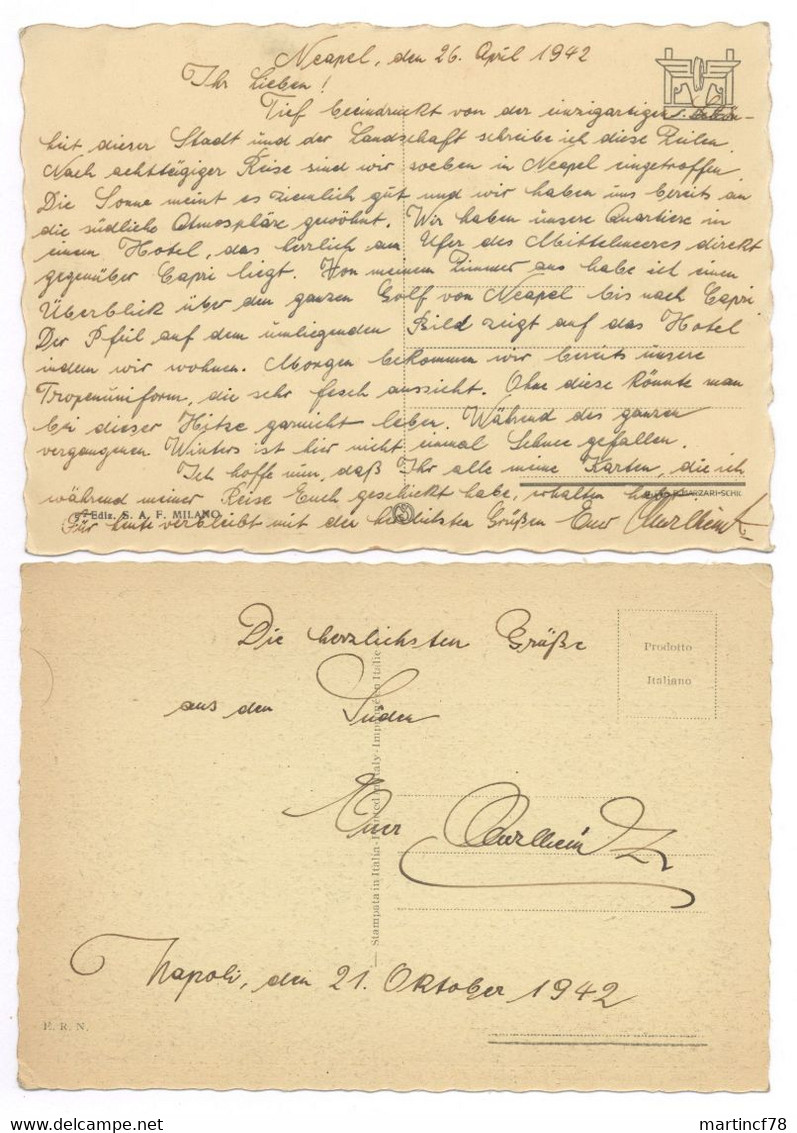 Neapel, den 26. April 1942
Ihr Lieben!
Tief beeindruckt von der einzigartigen Schön-
heit dieser Stadt und der Landschaft schreibe ich diese Zeilen.
Nach achttägiger Reise sind wir soeben in Neapel eingetroffen.
Die Sonne meint es ziemlich gut und wir haben uns bereits an
die südliche Atmosphäre gewöhnt. Wir haben unsere Quartiere in
einem Hotel, das herrlich am Ufer des Mittelmeeres direkt
gegenüber Capri liegt. Von meinem Zimmer aus habe ich einen
Überblick über den ganzen Golf von Neapel bis nach Capri.
Der Pfeil auf dem umliegenden Bild zeigt auf das Hotel
indem wir wohnen. Morgen bekommen wir bereits unsere
Tropenuniform, die sehr fesch aussieht. Ohne diese könnte man
bei dieser Hitze garnicht leben. Während des ganzen
vergangenen Winters ist hier nicht einmal Schnee gefallen.
Ich hoffe nun, daß Ihr alle meine Karten, die ich
während meiner Reise Euch geschickt habe, erhalten habt.
Für heute verbleibt mit den herzlichsten Grüßen Euer Karlheinz
Ediz. S. A. F. MILANO
Die herzlichsten Grüße
aus dem Süden
Prodotto
Italiano
Euer Karlheinz
— Stampata in Italia - Printed in Italy - Imprimé en Italie
Napoli, den 21. Oktober 1942
E. R. N.
www.delcampe.net
martincf78